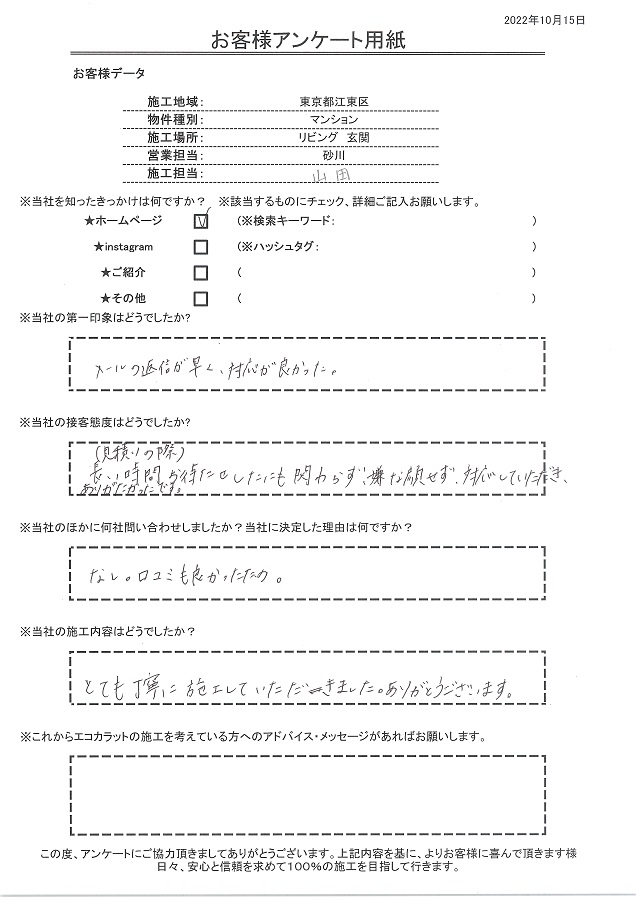 2022年10月15日
お客様アンケート用紙
お客様データ
施工地域： 東京都江東区
物件種別： マンション
施工場所： リビング 玄関
営業担当： 砂川
施工担当： 山田
※当社を知ったきっかけは何ですか？ ※該当するものにチェック、詳細ご記入お願いします。
★ホームページ (※検索キーワード： )
★instagram (※ハッシュタグ： )
★ご紹介 ( )
★その他 ( )
※当社の第一印象はどうでしたか?
メールの返信が早く、対応が良かった。
※当社の接客態度はどうでしたか?
(見積りの際)
長い時間お待たせしたにも関わらず、嫌な顔せず、対応していただき、
ありがたかったです。
※当社のほかに何社問い合わせしましたか？当社に決定した理由は何ですか？
なし。口コミも良かったため。
※当社の施工内容はどうでしたか？
とても丁寧に施工していただきました。ありがとうございます。
※これからエコカラットの施工を考えている方へのアドバイス・メッセージがあればお願いします。
この度、アンケートにご協力頂きましてありがとうございます。上記内容を基に、よりお客様に喜んで頂きます様
日々、安心と信頼を求めて100%の施工を目指して行きます。